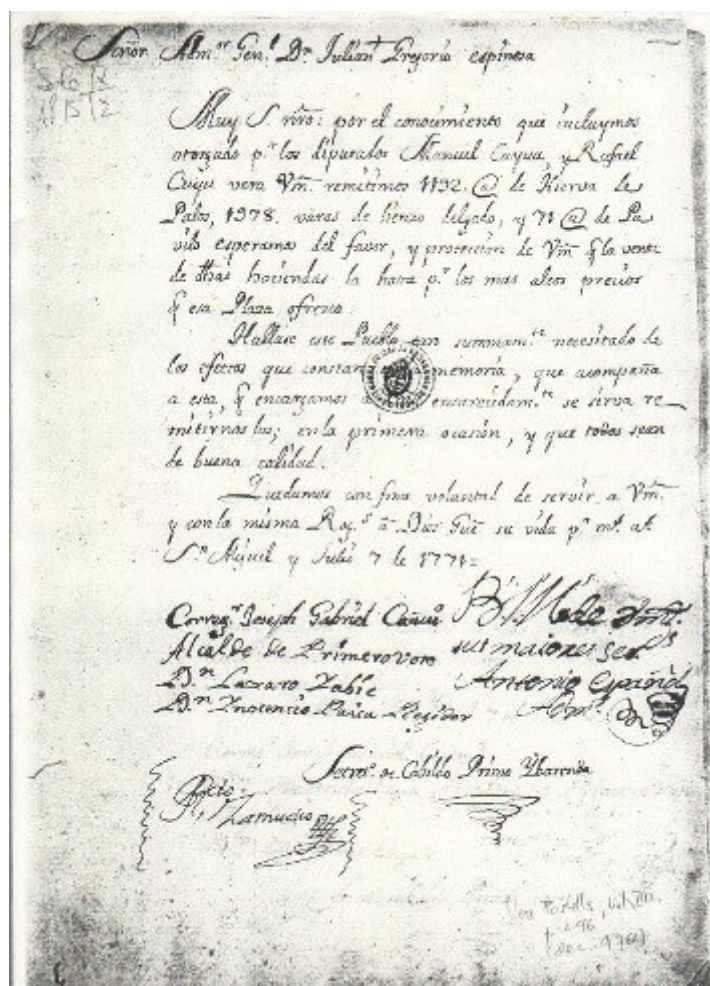 Señor Adm.or Gen.l Dn Julian Gregorio espinosa
Muy S. nr̃o: por el conocimiento que incluymos
otorgado p.r los diputados Manuel Cayuu, y Rafael
Cuyu vera Vm̃. remitimos 1192. @ de Hierva de
Palos, 1978. varas de lienzo delgado, y 71 @ de Pa
vilo esperamos del favor, y proteccion de Vm̃ q̃ la venta
de dhãs haciendas la hara p.r los mas altos precios
q̃ esa Plaza ofresca.
Hallase este Pueblo tan summam.te necesitado de
los efectos que constan memoria, que acompaña
a esta, q̃ encargamos encarecidam.te se sirva re
mitirnos los; en la primera ocasion, y que todos sean
de buena calidad.
Quedamos con fina voluntad de servir a Vm̃.
y con la misma Rog.s a Dios Gũe su vida p.r m.s a.s
S.n Miguel y Julio 7 de 1771=
Correg.r Joseph Gabriel B. l. M. de Vm̃.
Alcalde de Primero voto sus maiores ser.s
D.n Lazaro Antonio
D.n Ynocencio Regidor Adm.r
Secret.o de Cabildo Primo Ybarenda
Zamudio